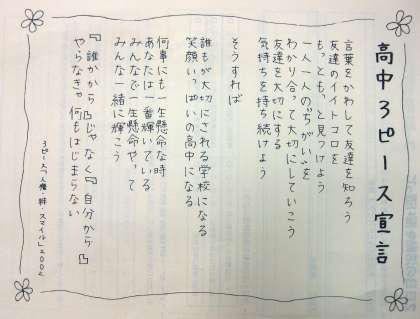 高中３ピース宣言
言葉をかわして友達を知ろう
友達のイイトコロを
もっともっと見つけよう
一人一人の"ちがい"を
わかり合って大切にしていこう
友達を大切にする
気持ちを持ち続けよう
そうすれば
誰もが大切にされる学校になる
笑顔いっぱいの高中になる
何事にも一生懸命な時
あなたは一番輝いている
みんなで一生懸命やって
みんな一緒に輝こう
『誰かから』じゃなく『自分から』
やらなきゃ何もはじまらない
３ピース「人権・絆・スマイル」２００２